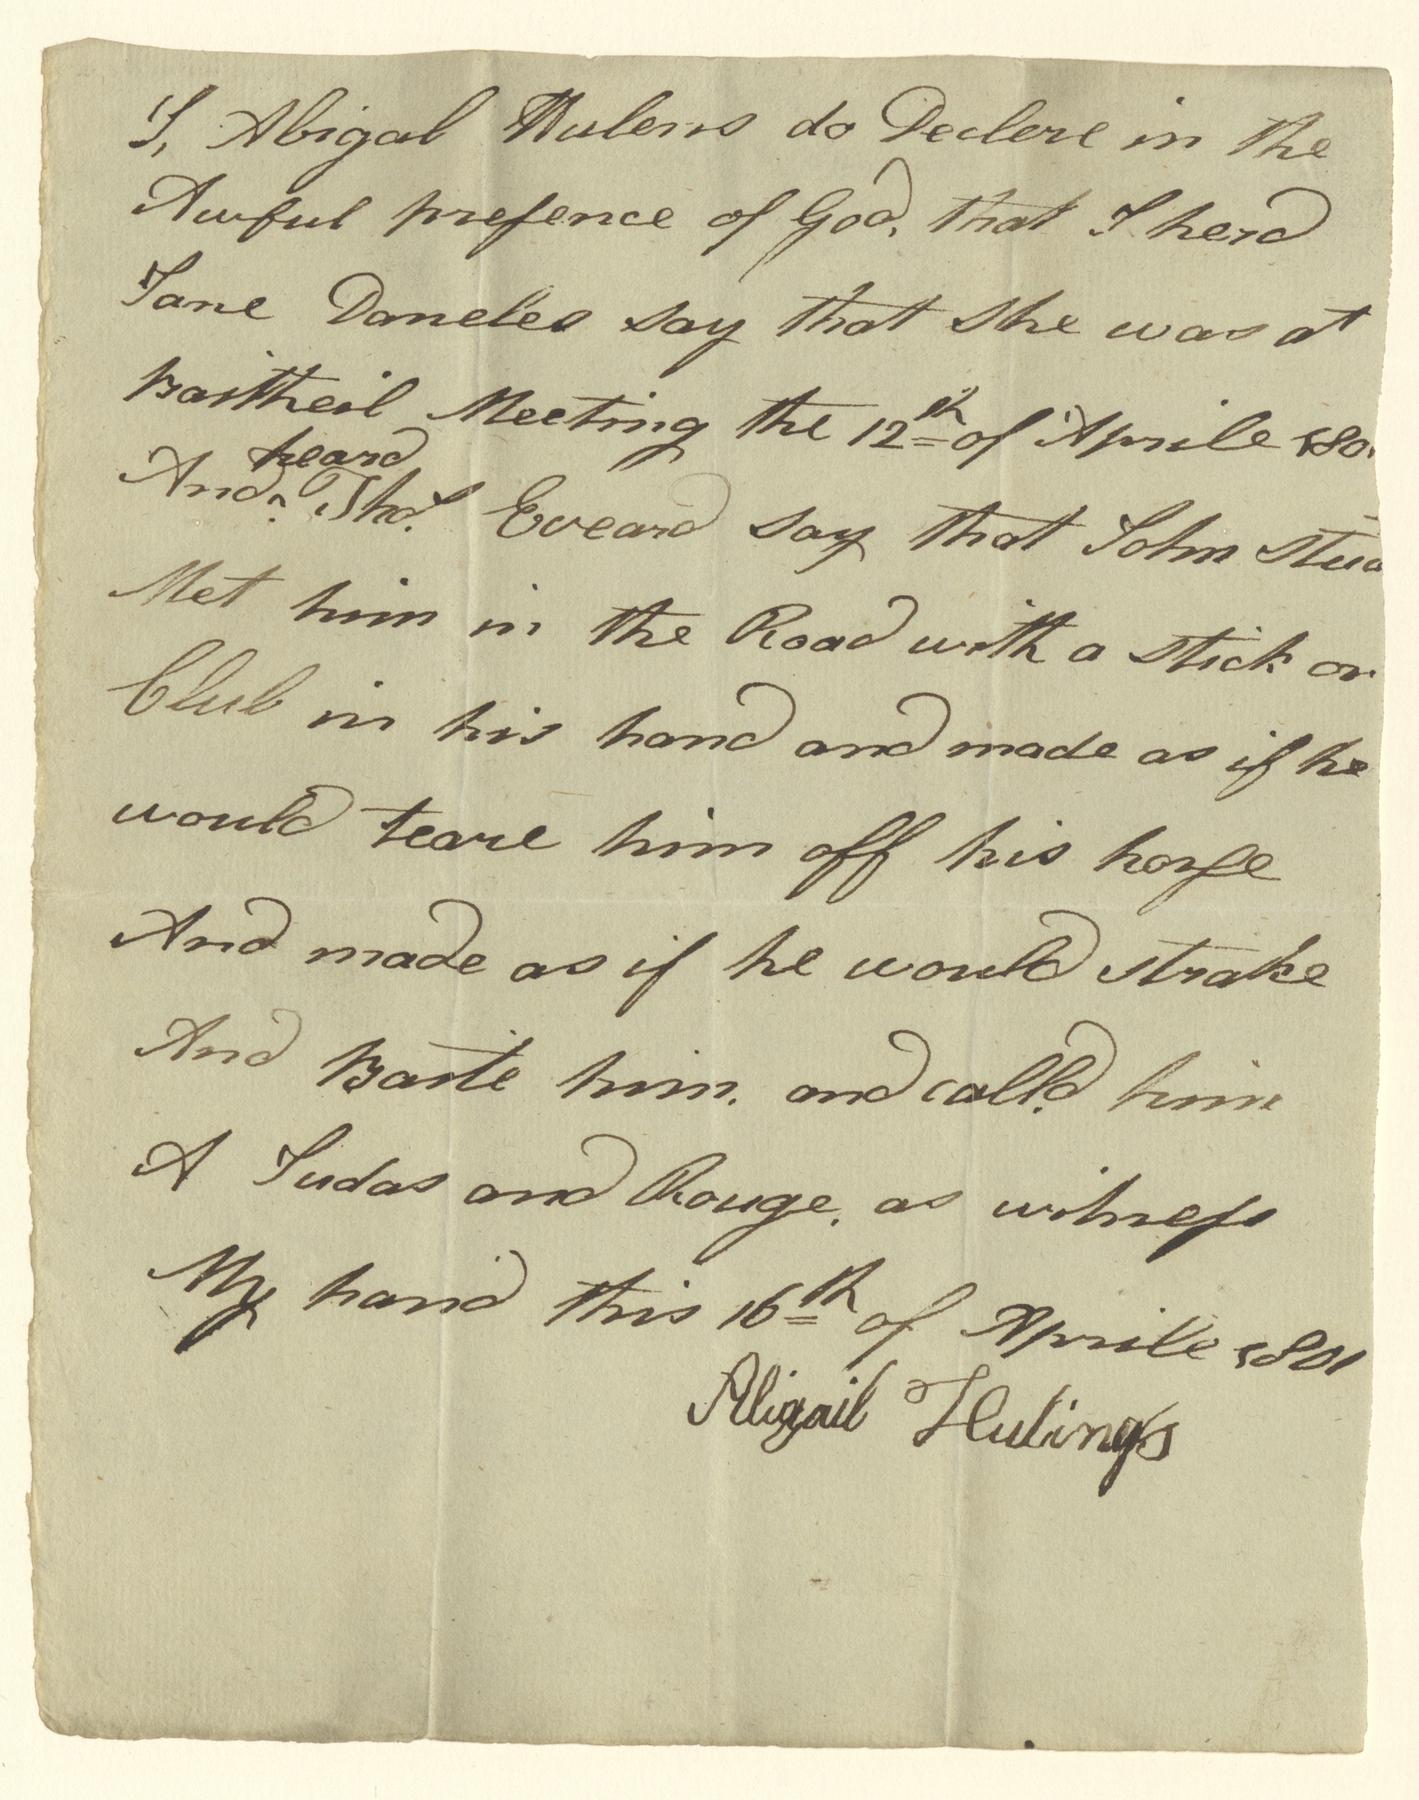 I, Abigal Hulens do Declere in the
Awful presence of God, that I herd
Jane Daneles say that she was at
Baitheil Meeting the 12th of Aprile 180
heard
And Thos. Eveard say that John Stua
Met him in the Road with a stick or
Club in his hand and made as if he
would teare him off his horse
And made as if he would strake
And Baite him. and call'd him
A Judas and Rouge, as witness
My hand this 16th of Aprile 1801
Abigail Hulings